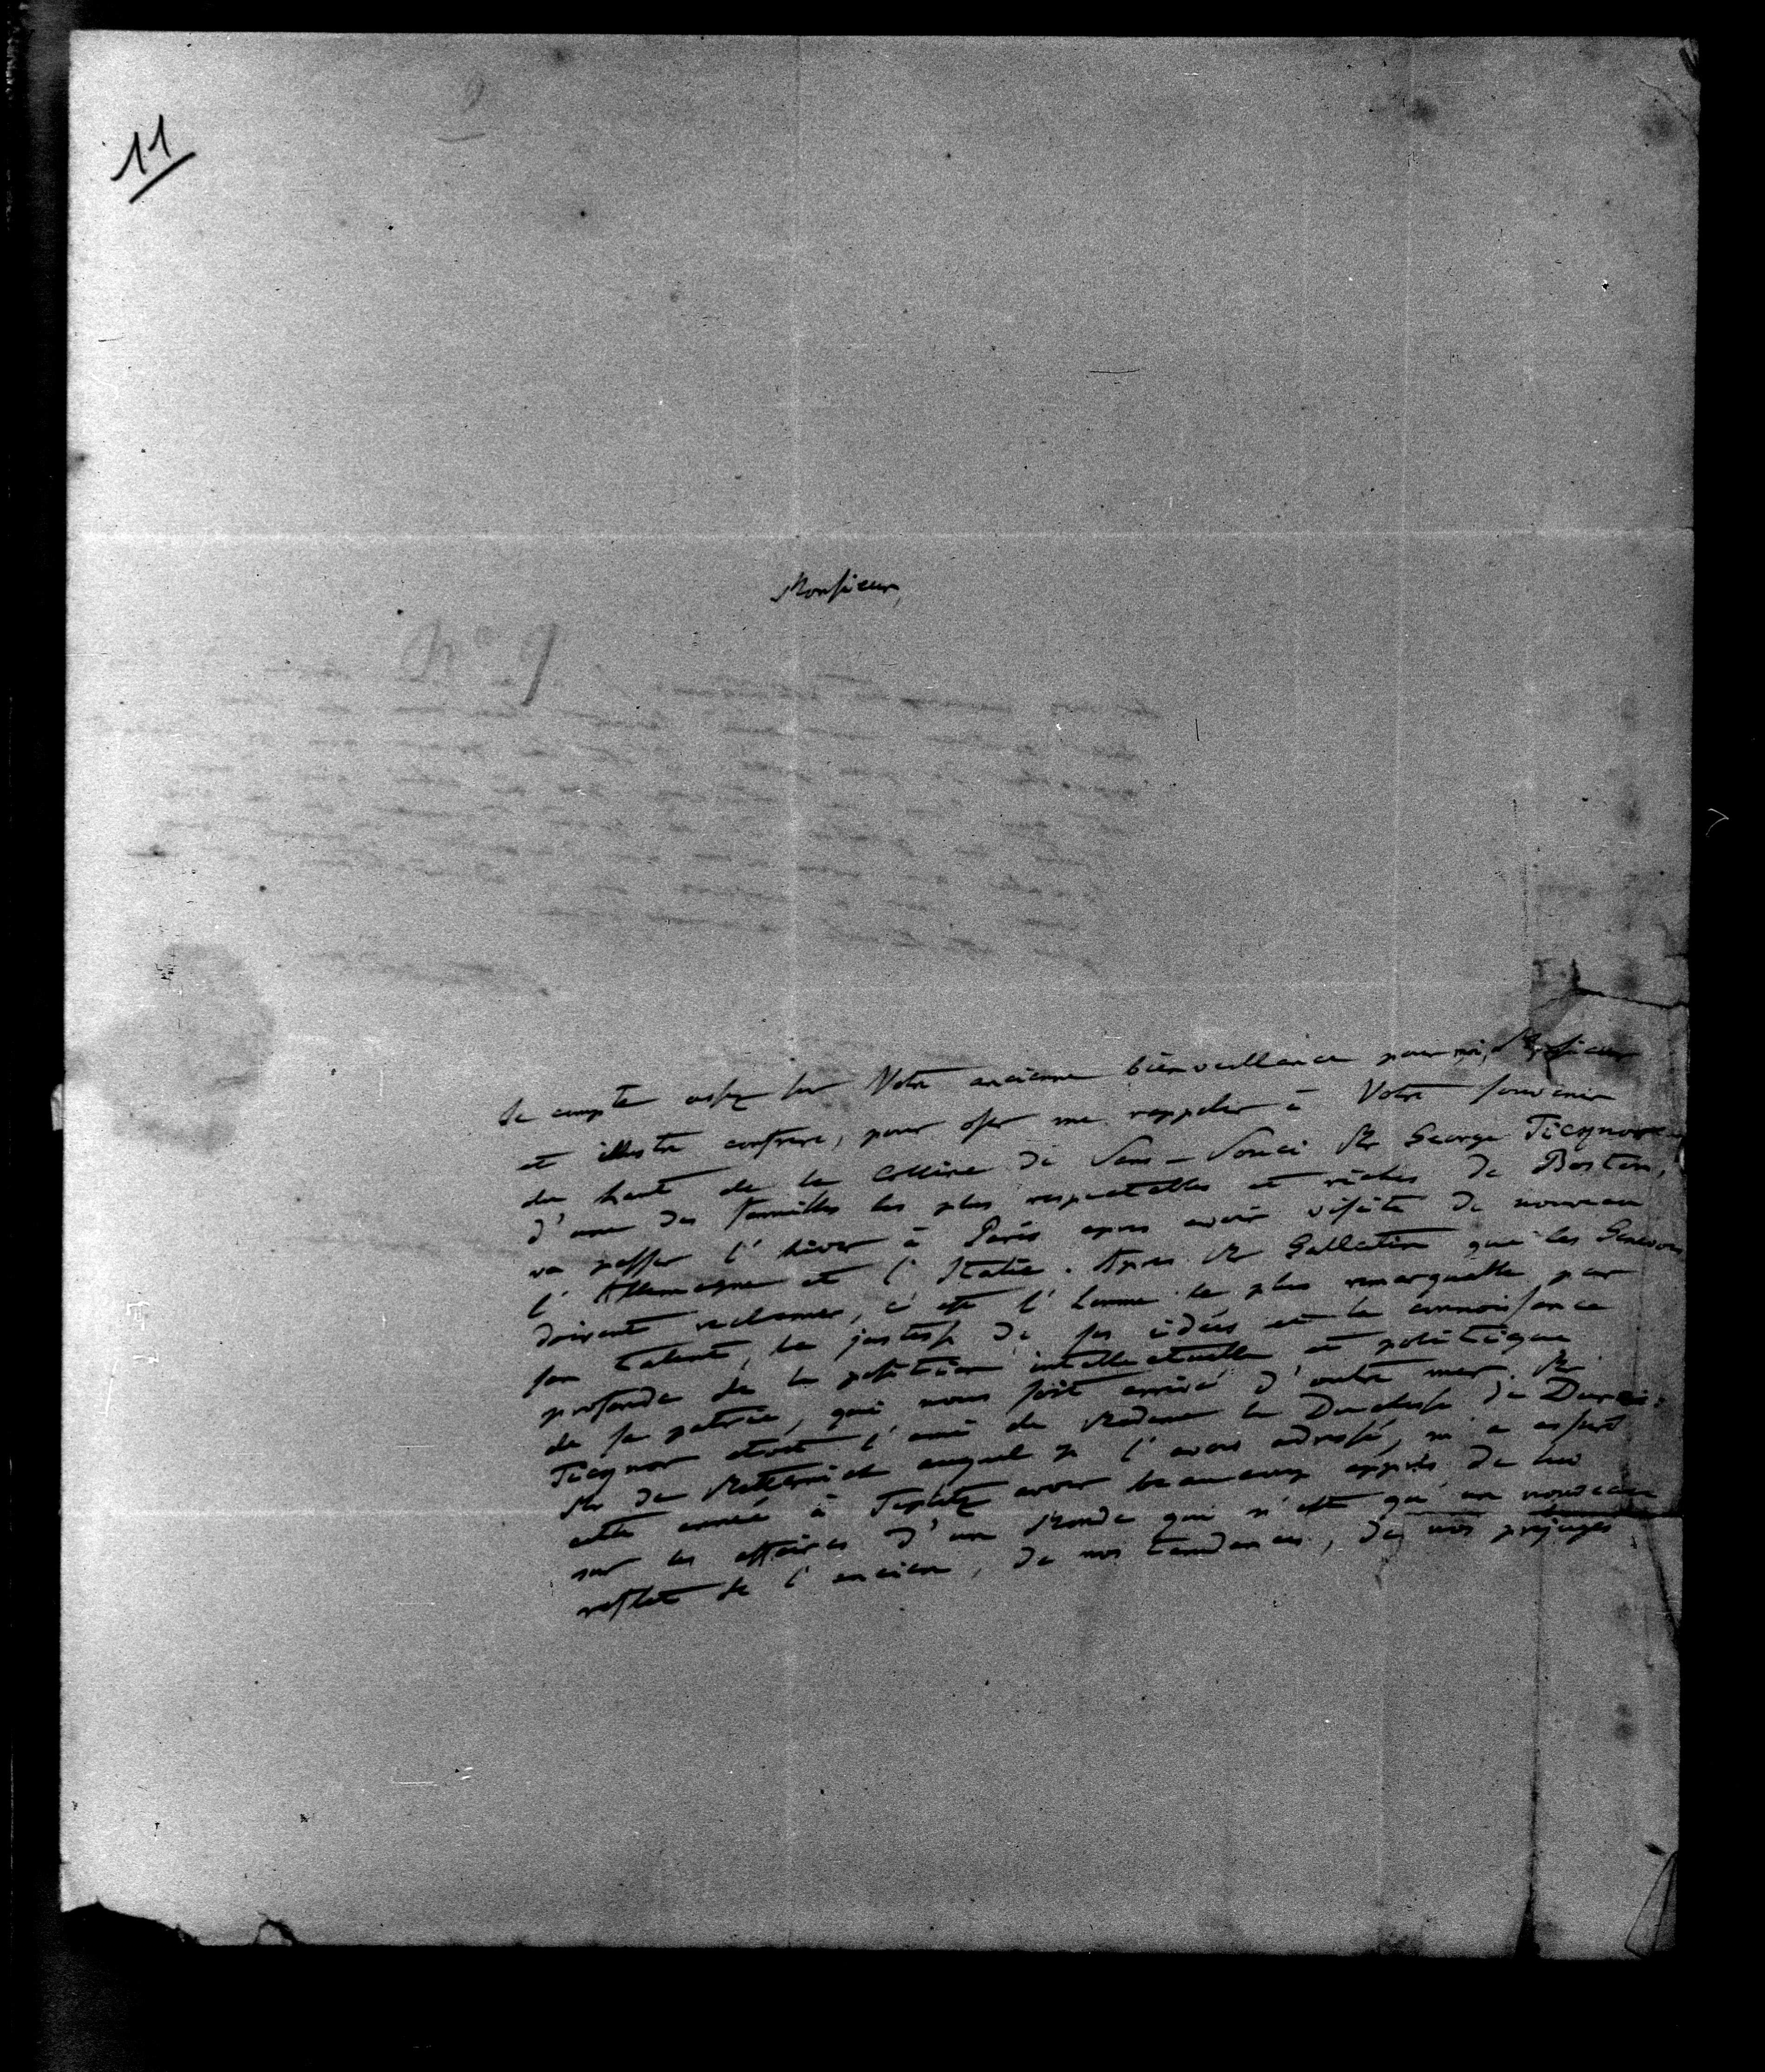 11
Monsieur,
N° 9
Je compte assez sur Votre ancienne bienveillance pour moi, Monsieur
et illustre confrere, pour oser me rappeler à Votre souvenir
du haut de la Colline de Sans-Souci Mr George Ticgnor
d'une des familles les plus respectables et riches de Boston,
va passer l'hiver à Paris apres avoir visité de nouveau
l'Allemagne et l'Italie. Apres Mr Gallatin que les Genevois
doivent reclamer, c'est l'homme le plus remarquable par
son talent, la justesse de ses idées et la connoissance
profonde de la position intellectuelle et politique
de sa patrie, qui nous soit arrivé d'outre mer. Mr
Ticgnor etoit l'ami de Madame la Duchesse de Duras:
Mr de Metternich auquel je l'avois adressé, m'a assuré
cette année à Toeplitz avoir beaucoup appris de lui
sur les affaires d'un Monde qui n'est qu'un nouveau
reflet de l'ancien, de nos tendances, de nos prejugés